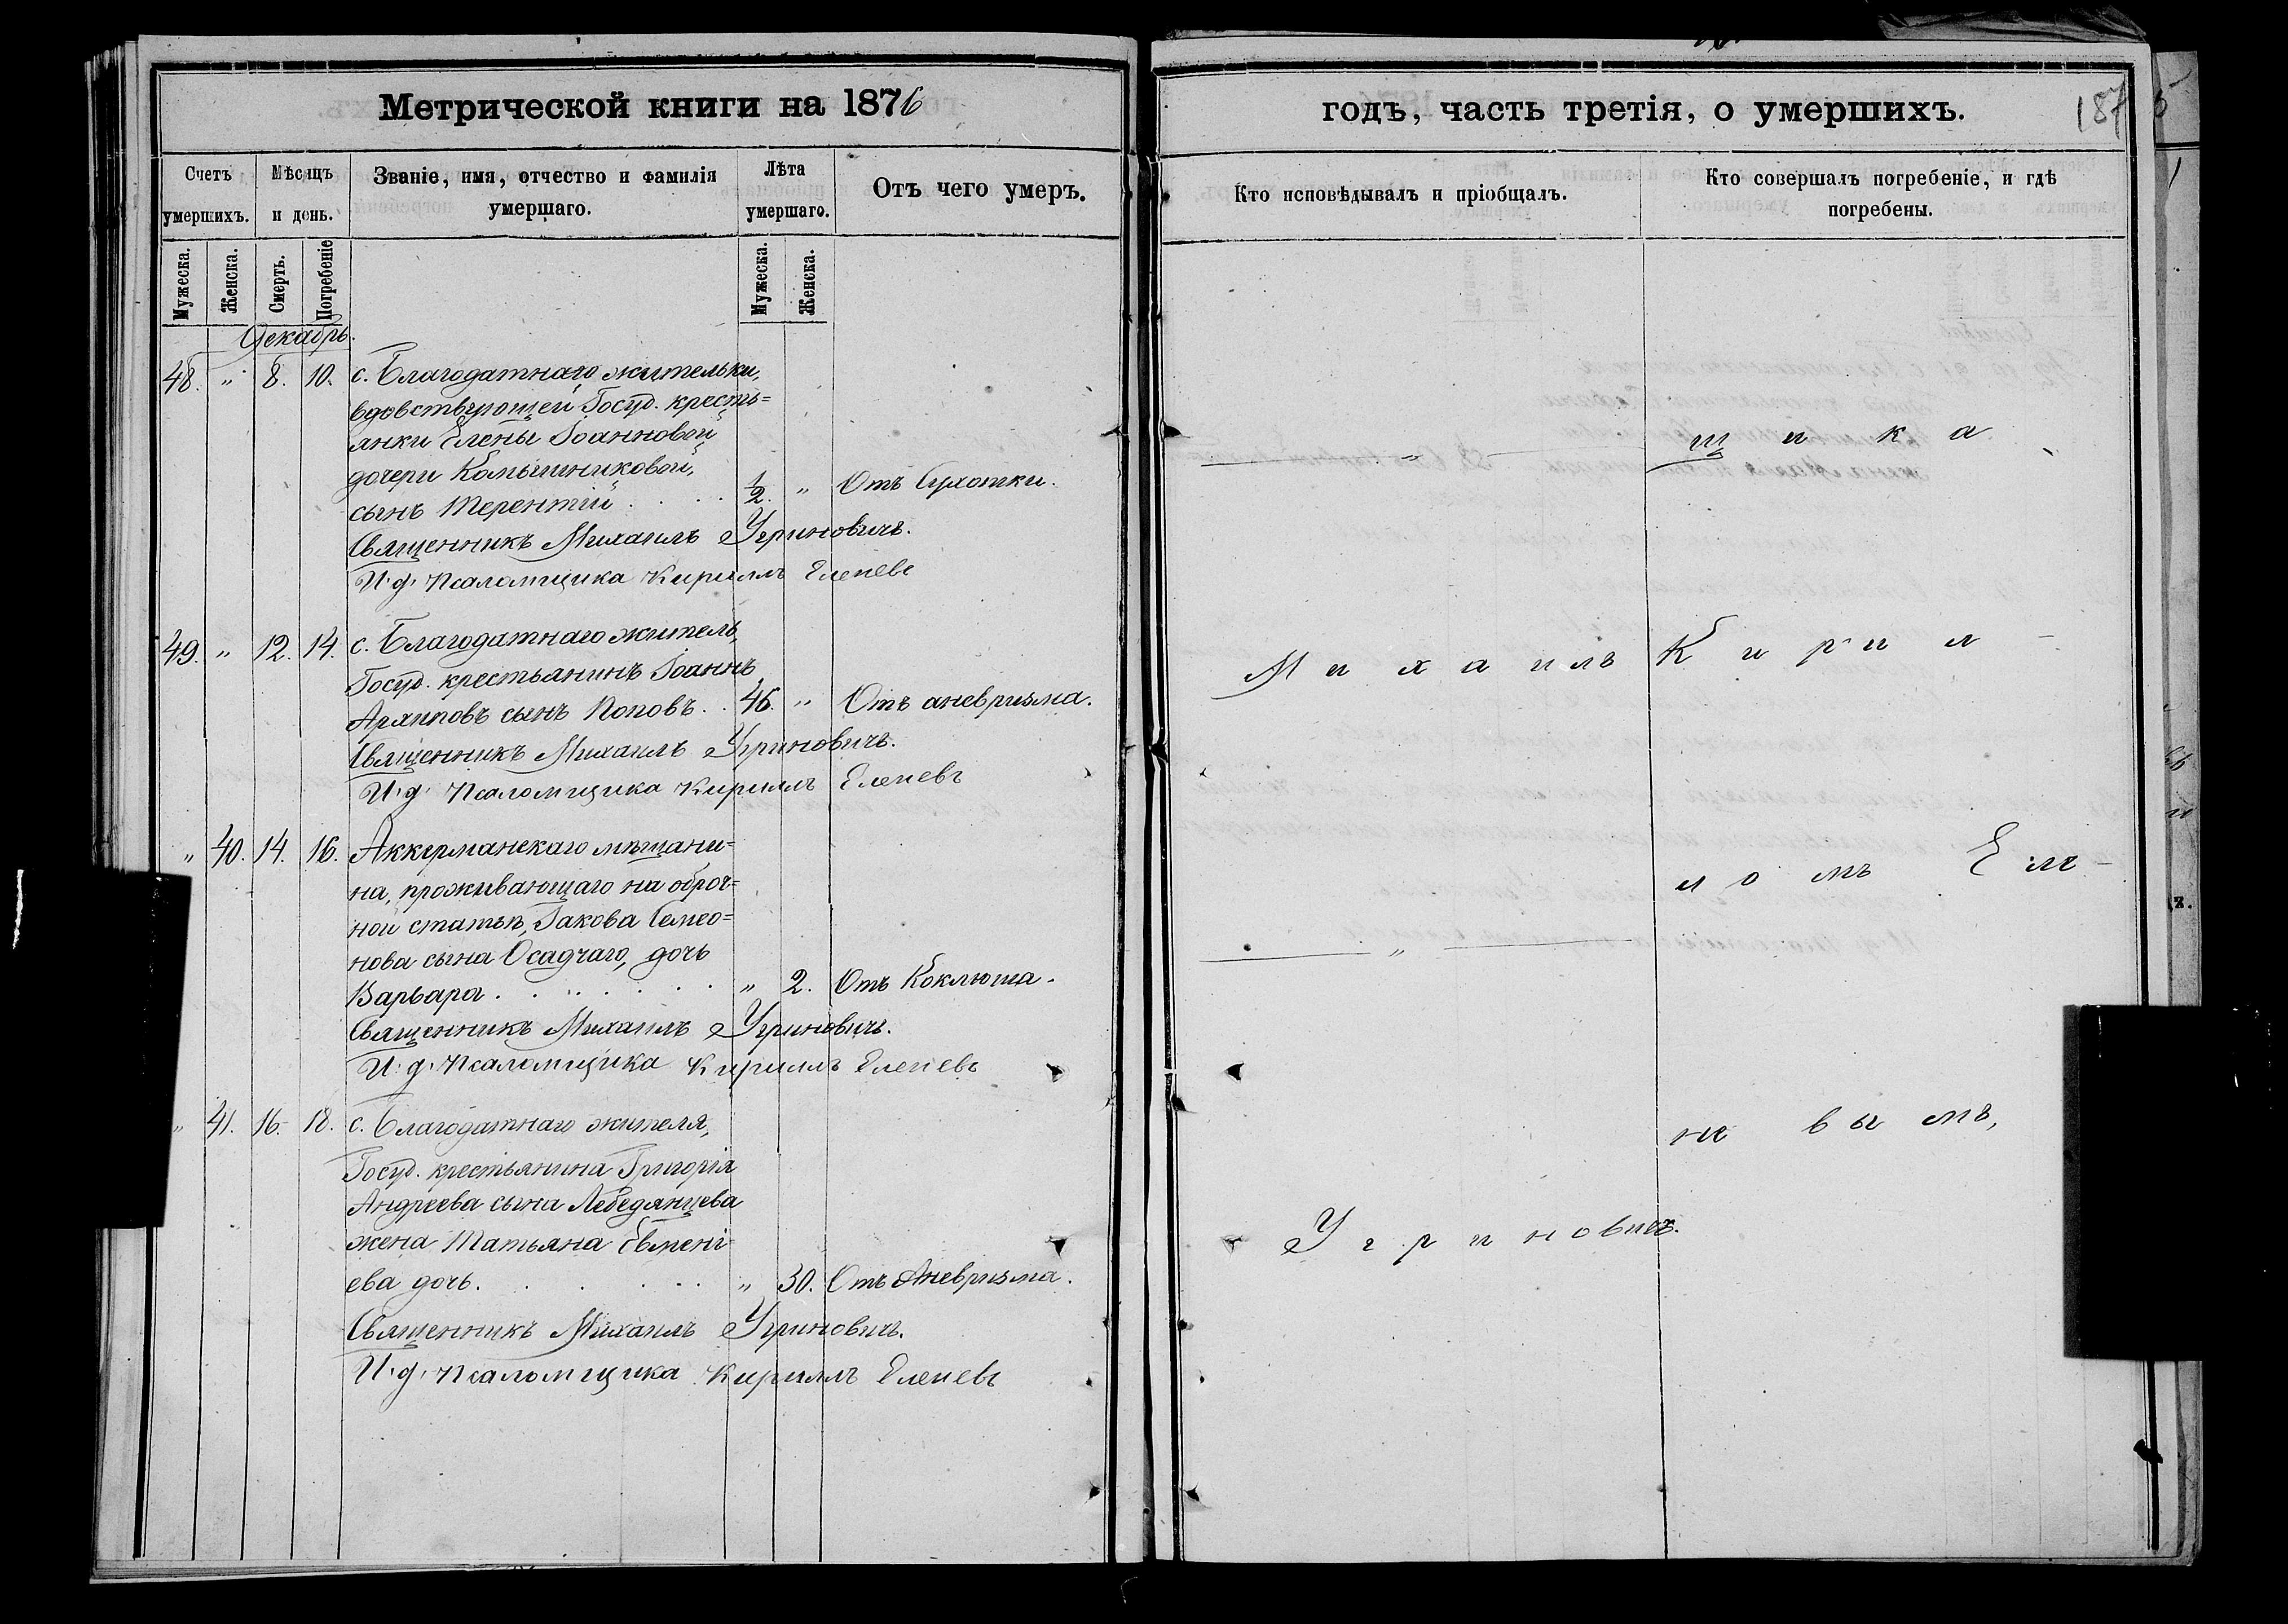 Метрической книги на 1876
Счетъ умершихъ.
Мѣсяцъ и день.
Званіе, имя, отчество и фамилія умершаго.
Лѣта умершаго.
Отъ чего умеръ.
Мужеска.
Женска.
Смерть.
Погребеніе
Мужеска.
Женска.
Декабрь.
48. " 8. 10. с. Благодатнаго жительки,
вдовствующей Госуд. кресть=
янки Елены Іоанновой
дочери Камышниковой,
сынъ Терентій . . . 1/2. " Отъ Сухотки.
Священникъ Михаилъ Угриновичъ.
И. д. Псаломщика Кириллъ Еленевъ
49. " 12. 14. с. Благодатнаго житель,
Госуд. крестьянинъ Іоаннъ
Архиповъ сынъ Поповъ. . 46. " Отъ аневризма.
Священникъ Михаилъ Угриновичъ.
И. д. Псаломщика Кириллъ Еленевъ
" 40. 14. 16. Аккерманскаго мѣщани=
на, проживающаго на оброч=
ной статьѣ, Іакова Симео=
нова сына Осадчаго, дочь
Варвара . . . . . . " 2. Отъ Коклюша.
Священникъ Михаилъ Угриновичъ.
И. д. Псаломщика Кириллъ Еленевъ
" 41. 16. 18. с. Благодатнаго жителя,
Госуд. крестьянина Григорія
Андреева сына Лебедянцева
жена Татьяна Евмені
ева дочь. . . . . " 30. Отъ Аневризма.
Священникъ Михаилъ Угриновичъ.
И. д. Псаломщика Кириллъ Еленевъ
годъ, часть третія, о умершихъ.
187
Кто исповѣдывалъ и пріобщалъ.
Кто совершалъ погребеніе, и гдѣ
погребены.
" щ и к а
Михаилъ Кирил-
ломъ Еле-
"
невымъ,
Угриновичъ.